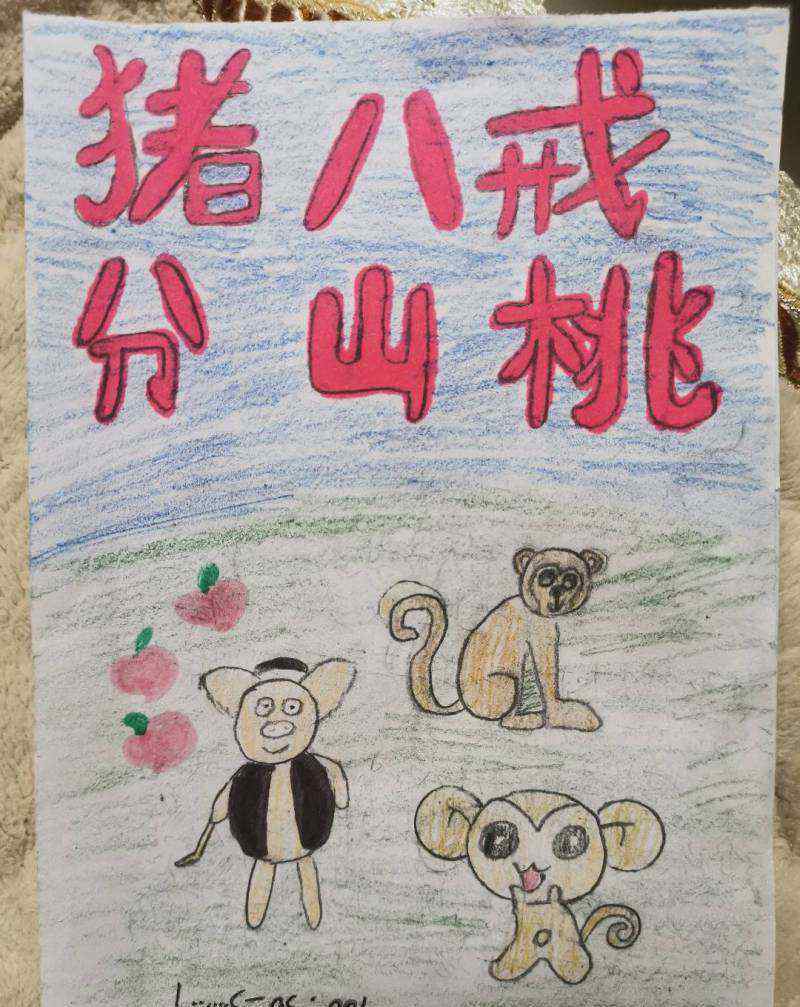 猪八戒
分山桃